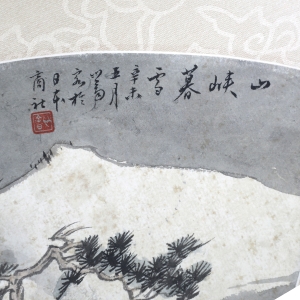 山峽暮雪
辛未
五月
溥
客於
日本
商社